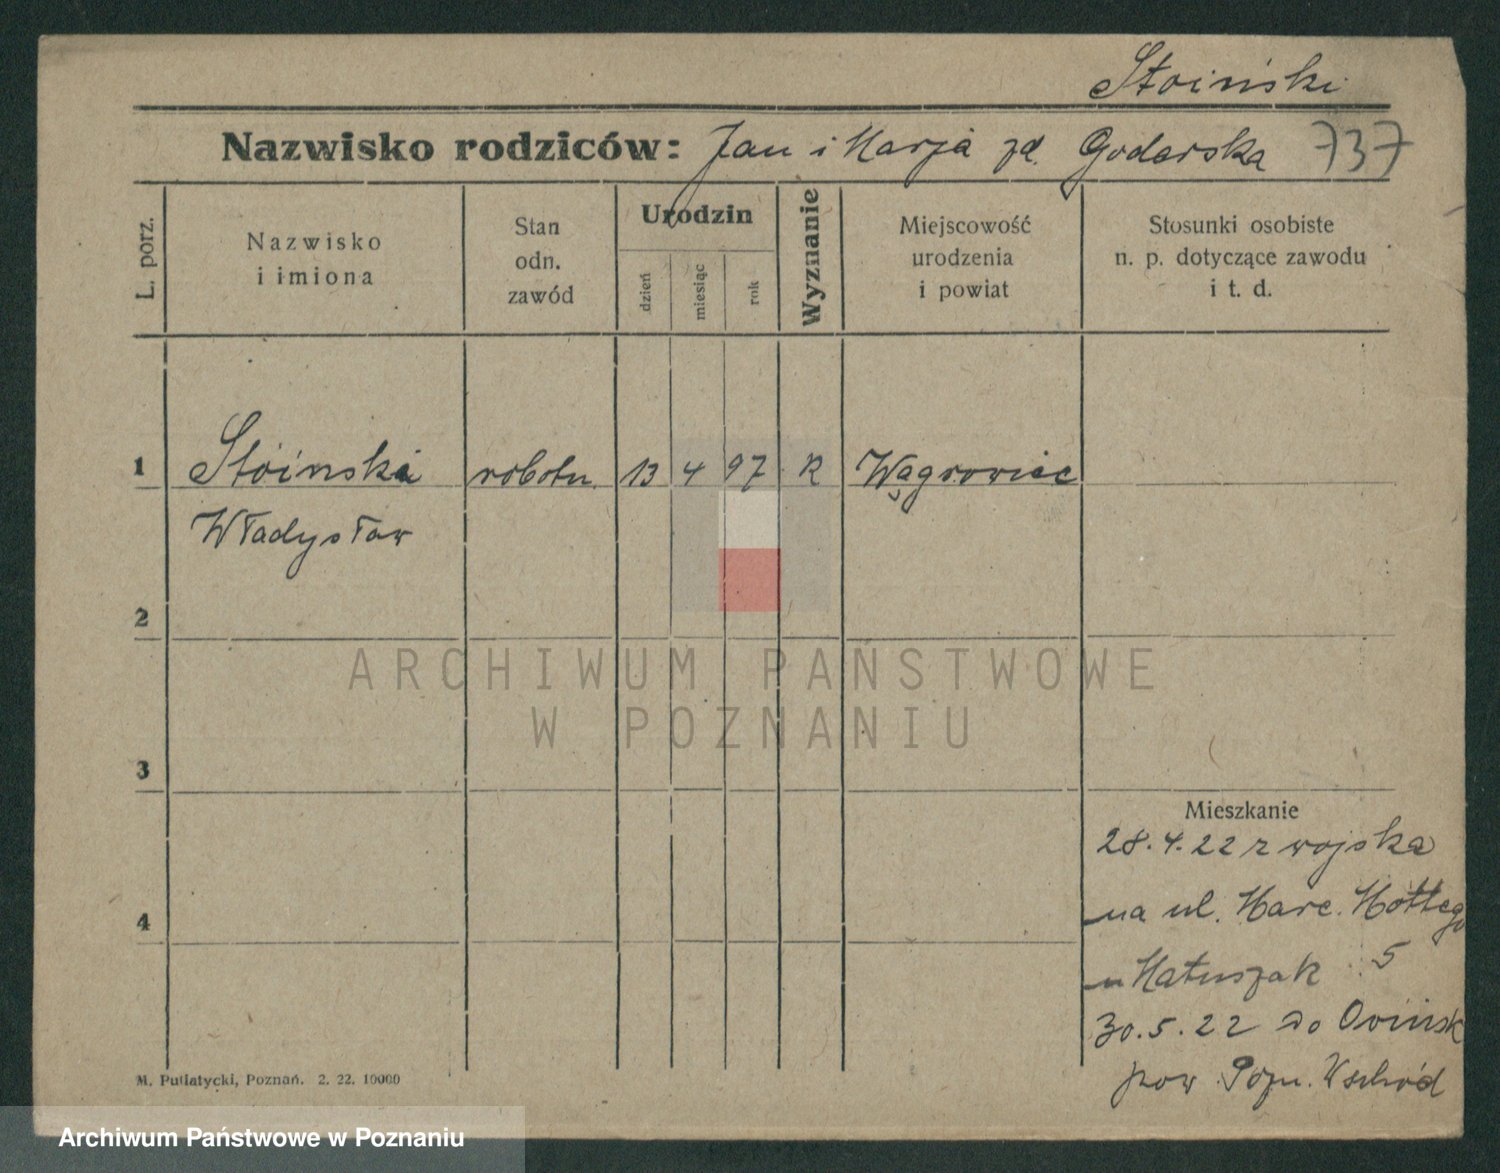 Stoiński
Nazwisko rodziców: Jan i Marja zd. Godarska 737
L. porz.
Nazwisko
i imiona
Stan
odn.
zawód
Urodzin
dzień
miesiąc
rok
Wyznanie
Miejscowość
urodzenia
i powiat
Stosunki osobiste
n. p. dotyczące zawodu
i t. d.
1 Stoinski robotn. 13 4 97 R Wągrowiec
Władysław
2
ARCHIWUM PAŃSTWOWE
W POZNANIU
3
Mieszkanie
28.4.22 z wojska
na ul. Marc. Mottego
4
u Matuszak 5
30.5.22 do Owińsk
pow. Pozn. Wschód
M. Putiatycki, Poznań. 2. 22. 10000
Archiwum Państwowe w Poznaniu